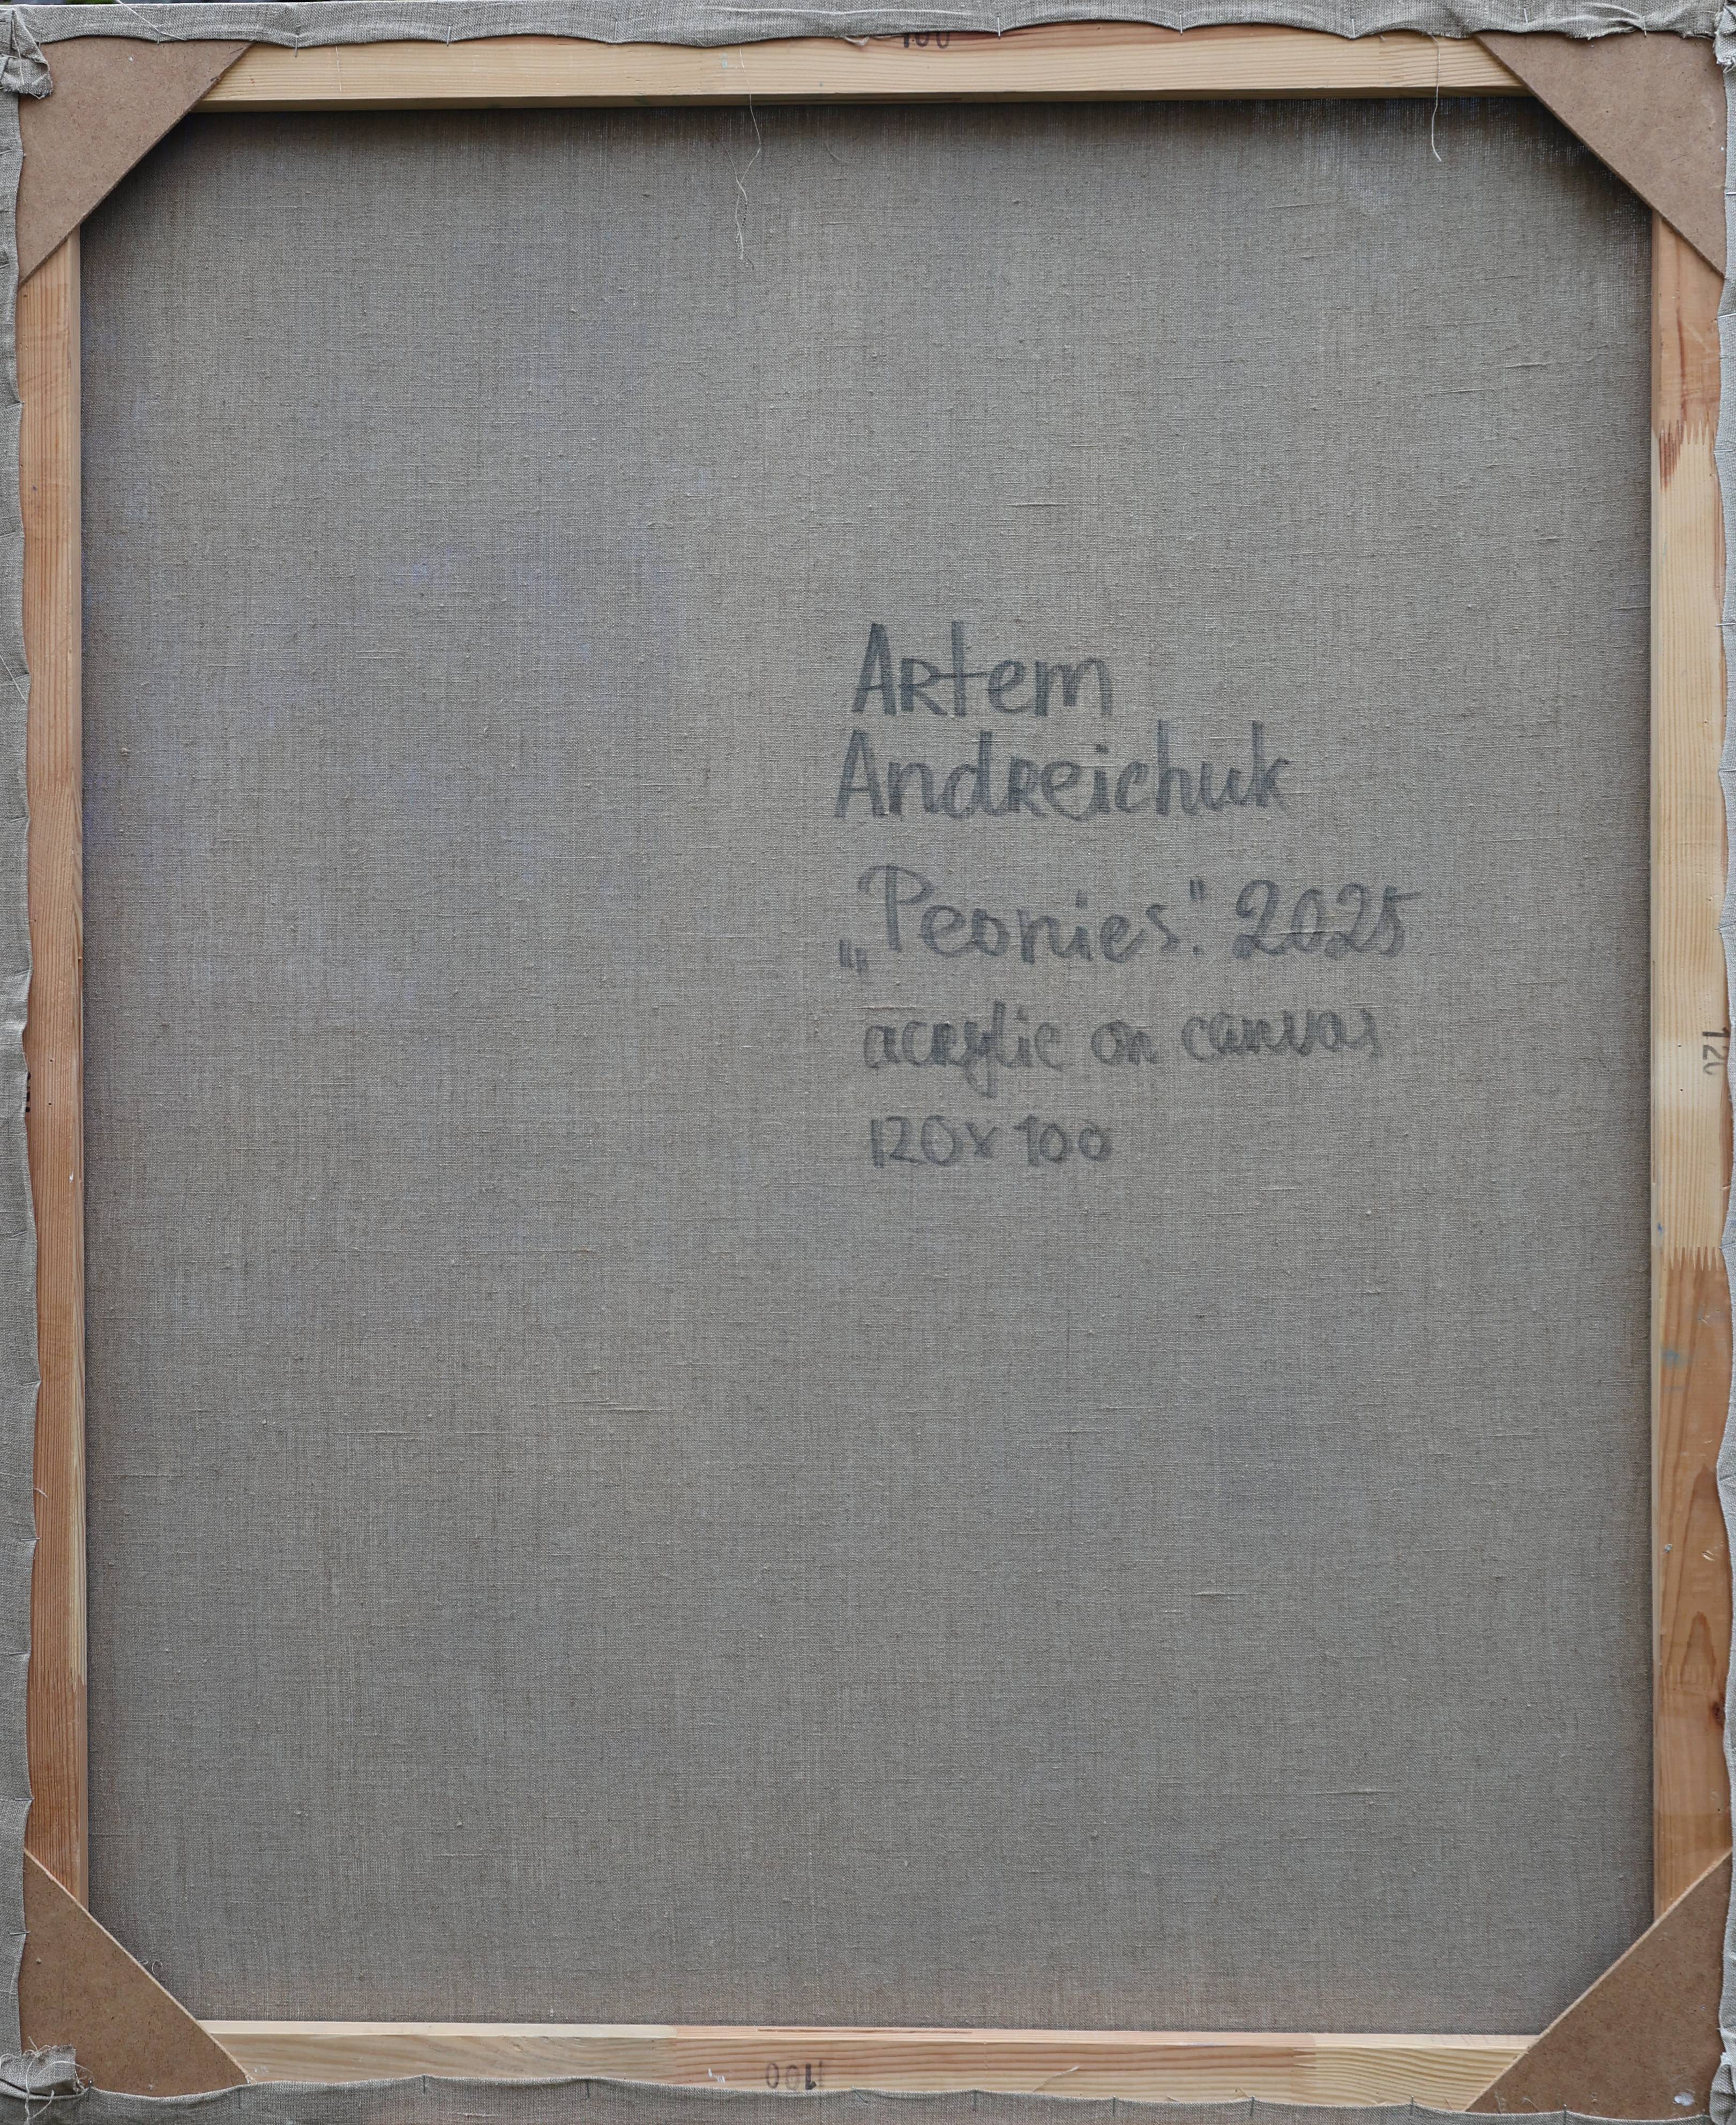 100
Artem
Andreichuk
„Peonies". 2025
acrylic on canvas
120x100
120
100